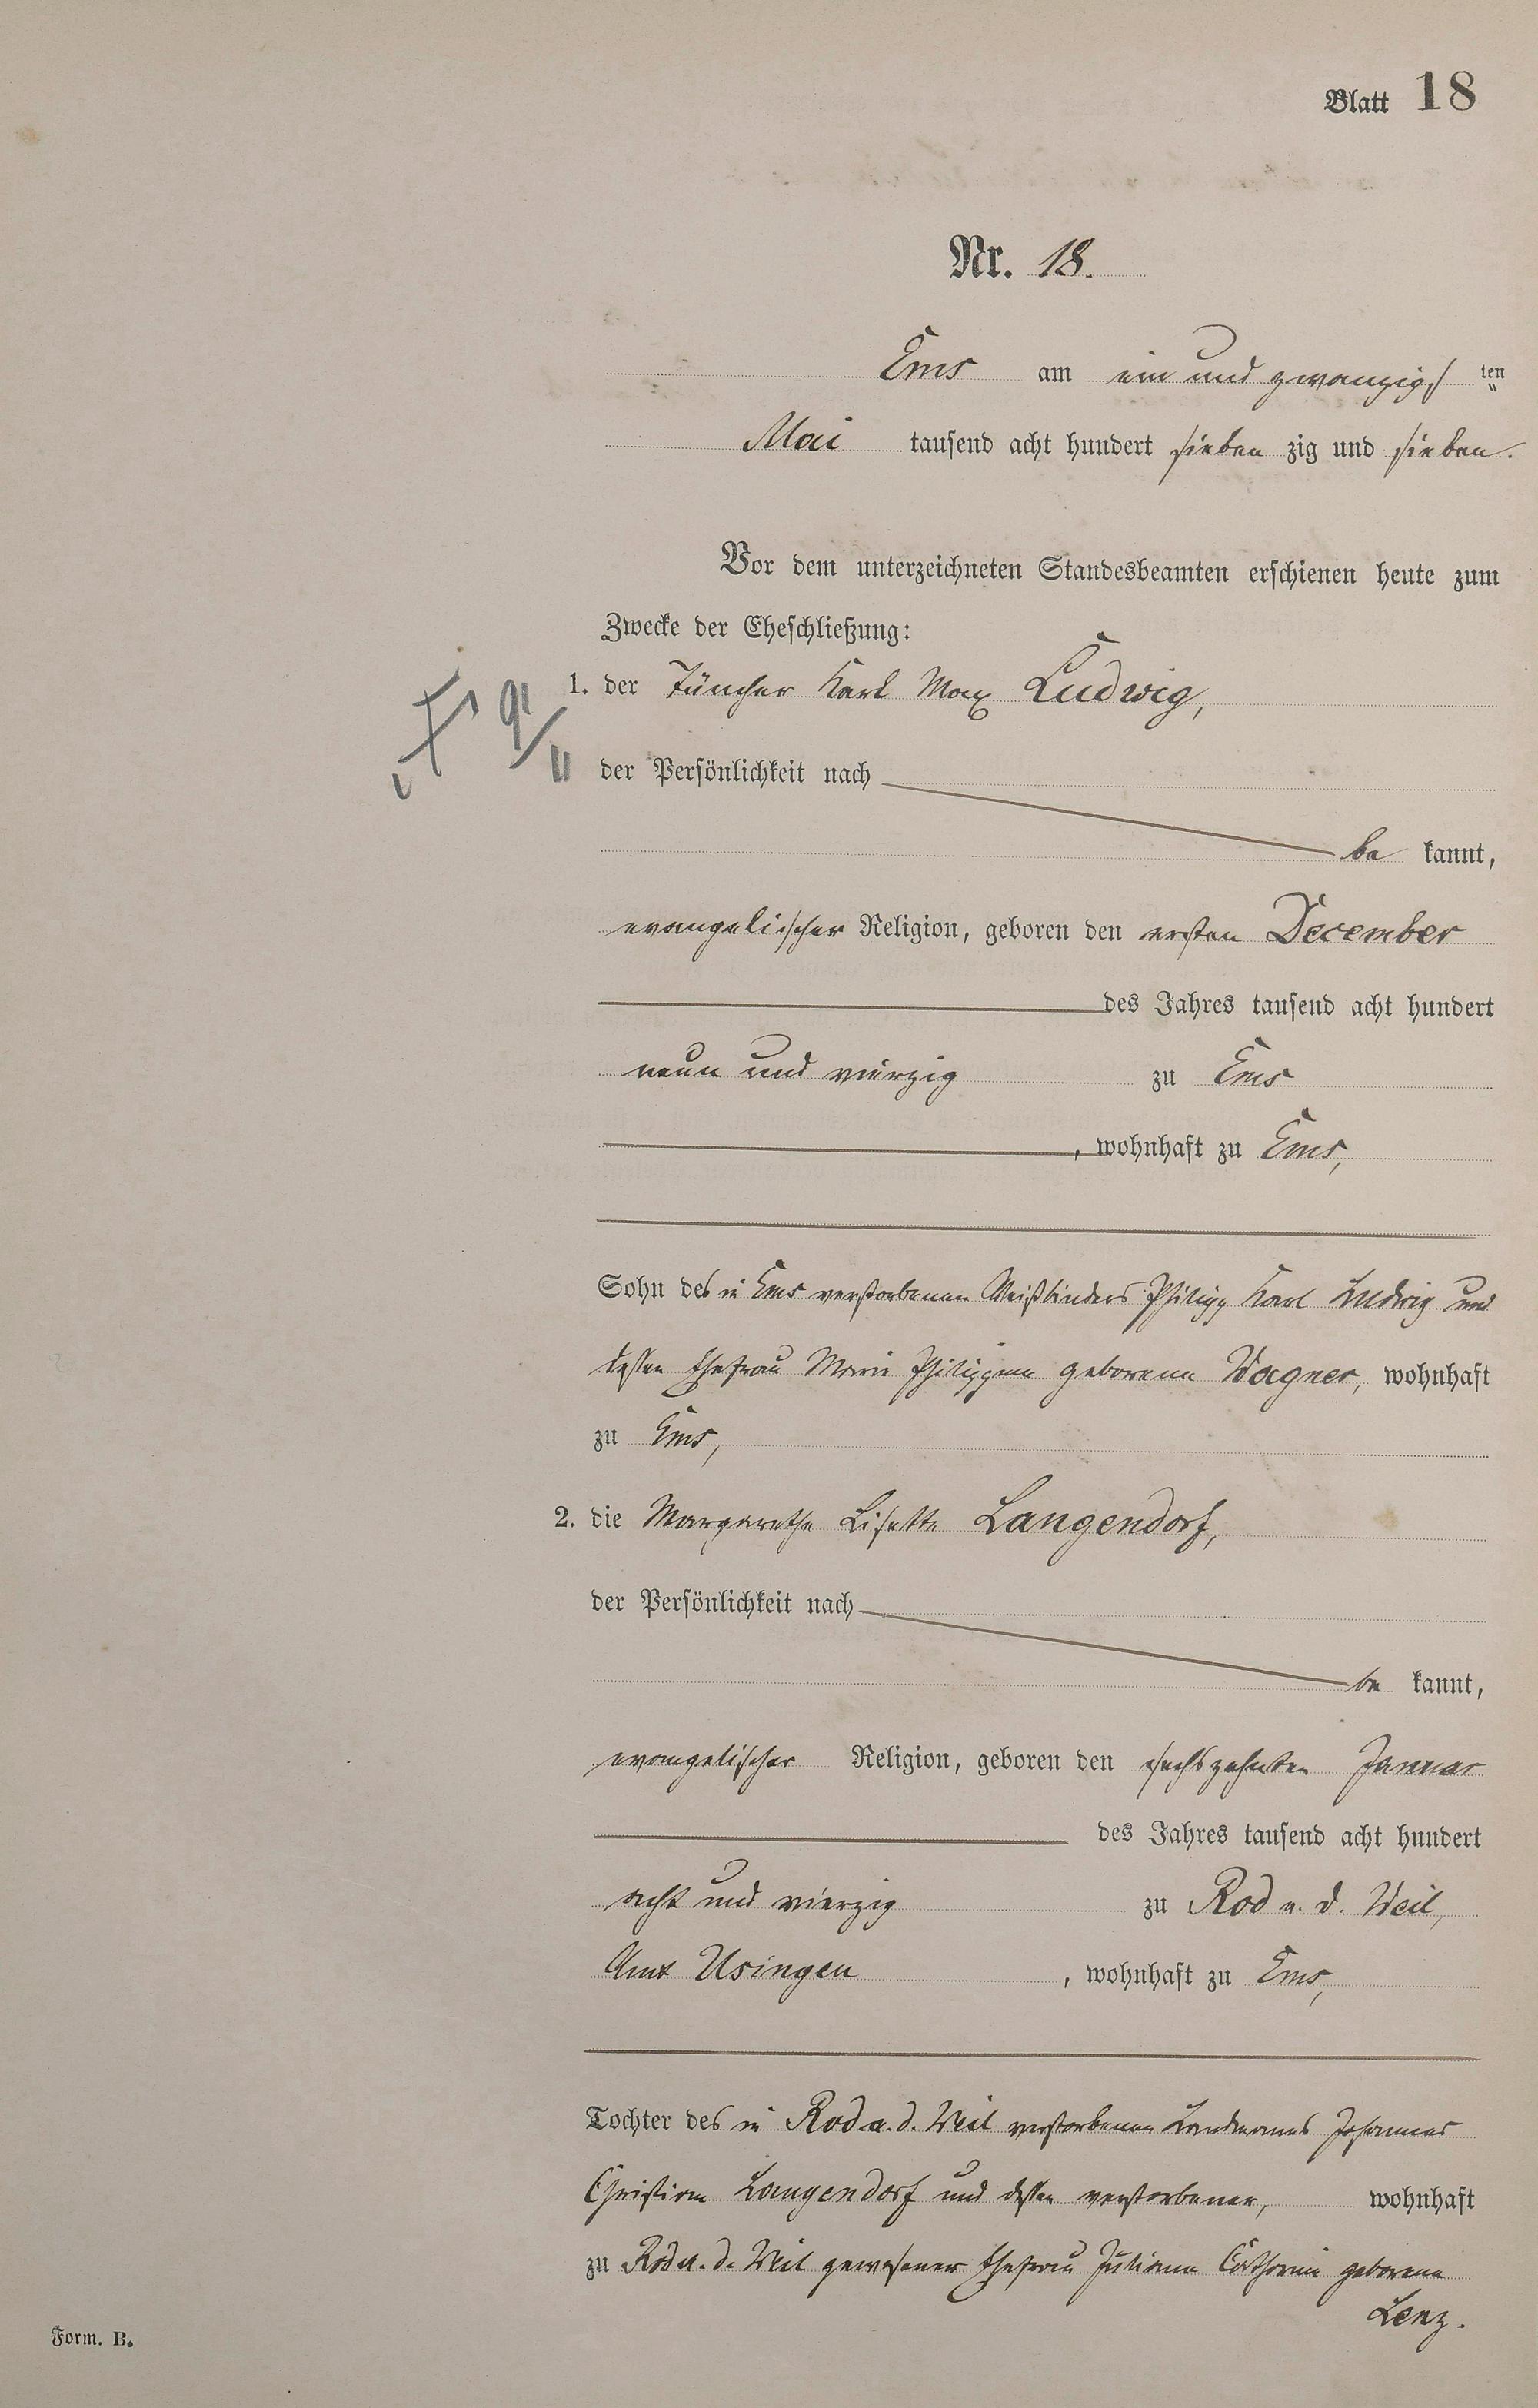 Blatt 18
Nr. 18.
Ems am ein und zwanzigs ten
Mai tausend acht hundert sieben zig und sieben.
Vor dem unterzeichneten Standesbeamten erschienen heute zum
Zwecke der Eheschließung:
1. der Tüncher Karl Max Ludwig,
der Persönlichkeit nach
be kannt,
evangelischer Religion, geboren den ersten December
des Jahres tausend acht hundert
neun und vierzig zu Ems
, wohnhaft zu Ems,
Sohn des in Ems verstorbenen Weißbinders Philipp Karl Ludwig und
dessen Ehefrau Marie Philippine geborene Wagner, wohnhaft
zu Ems,
2. die Margarethe Lisette Langendorf,
der Persönlichkeit nach
be kannt,
evangelischer Religion, geboren den sechszehnten Januar
des Jahres tausend acht hundert
acht und vierzig zu Rod a. d. Weil,
Amt Usingen , wohnhaft zu Ems,
Tochter des in Rod a. d. Weil verstorbenen Landmanns Johannes
Christian Langendorf und dessen verstorbener, wohnhaft
zu Rod a. d. Weil gewesener Ehefrau Juliane Catharine geborene
Lenz.
Form. B.